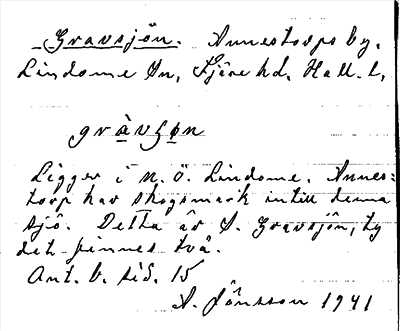 Gravsjön. Annestorps by,
Lindome Sn, Fjäre hd, Hall. l,
gràvʃøn
Ligger i n. ö. Lindome. Annes-
torp har skogsmark intill denna
sjö. Detta är S. Gravsjön, ty
det finnes två.
Ant. b. sid. 15
A. Jönsson 1941